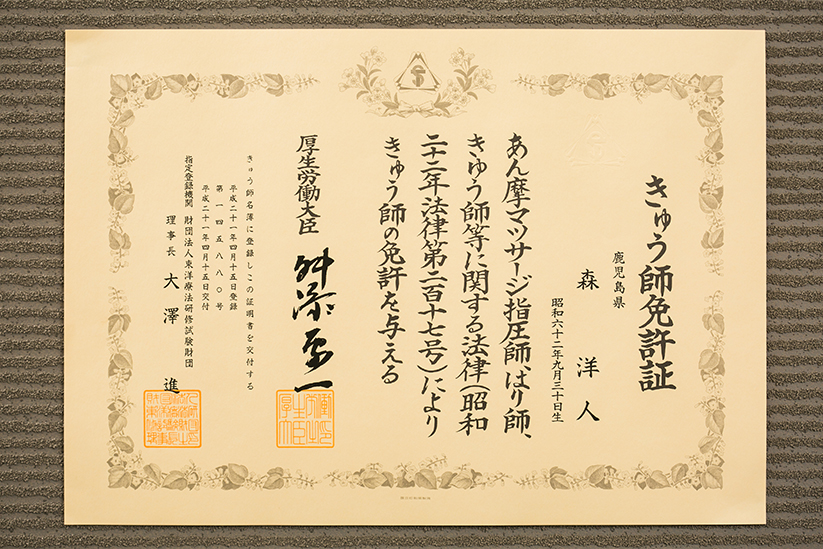 きゅう師免許証
鹿児島県
森 洋人
昭和六十二年九月三十日生
あん摩マツサージ指圧師、はり師、
きゆう師等に関する法律（昭和
二十二年法律第二百十七号）により
きゅう師の免許を与える
厚生労働大臣 舛添要一
きゅう師名簿に登録しこの証明書を交付する
平成二十一年四月十五日登録
第一四五八八〇号
平成二十一年四月十五日交付
指定登録機関 財団法人東洋療法研修試験財団
理事長 大澤 進